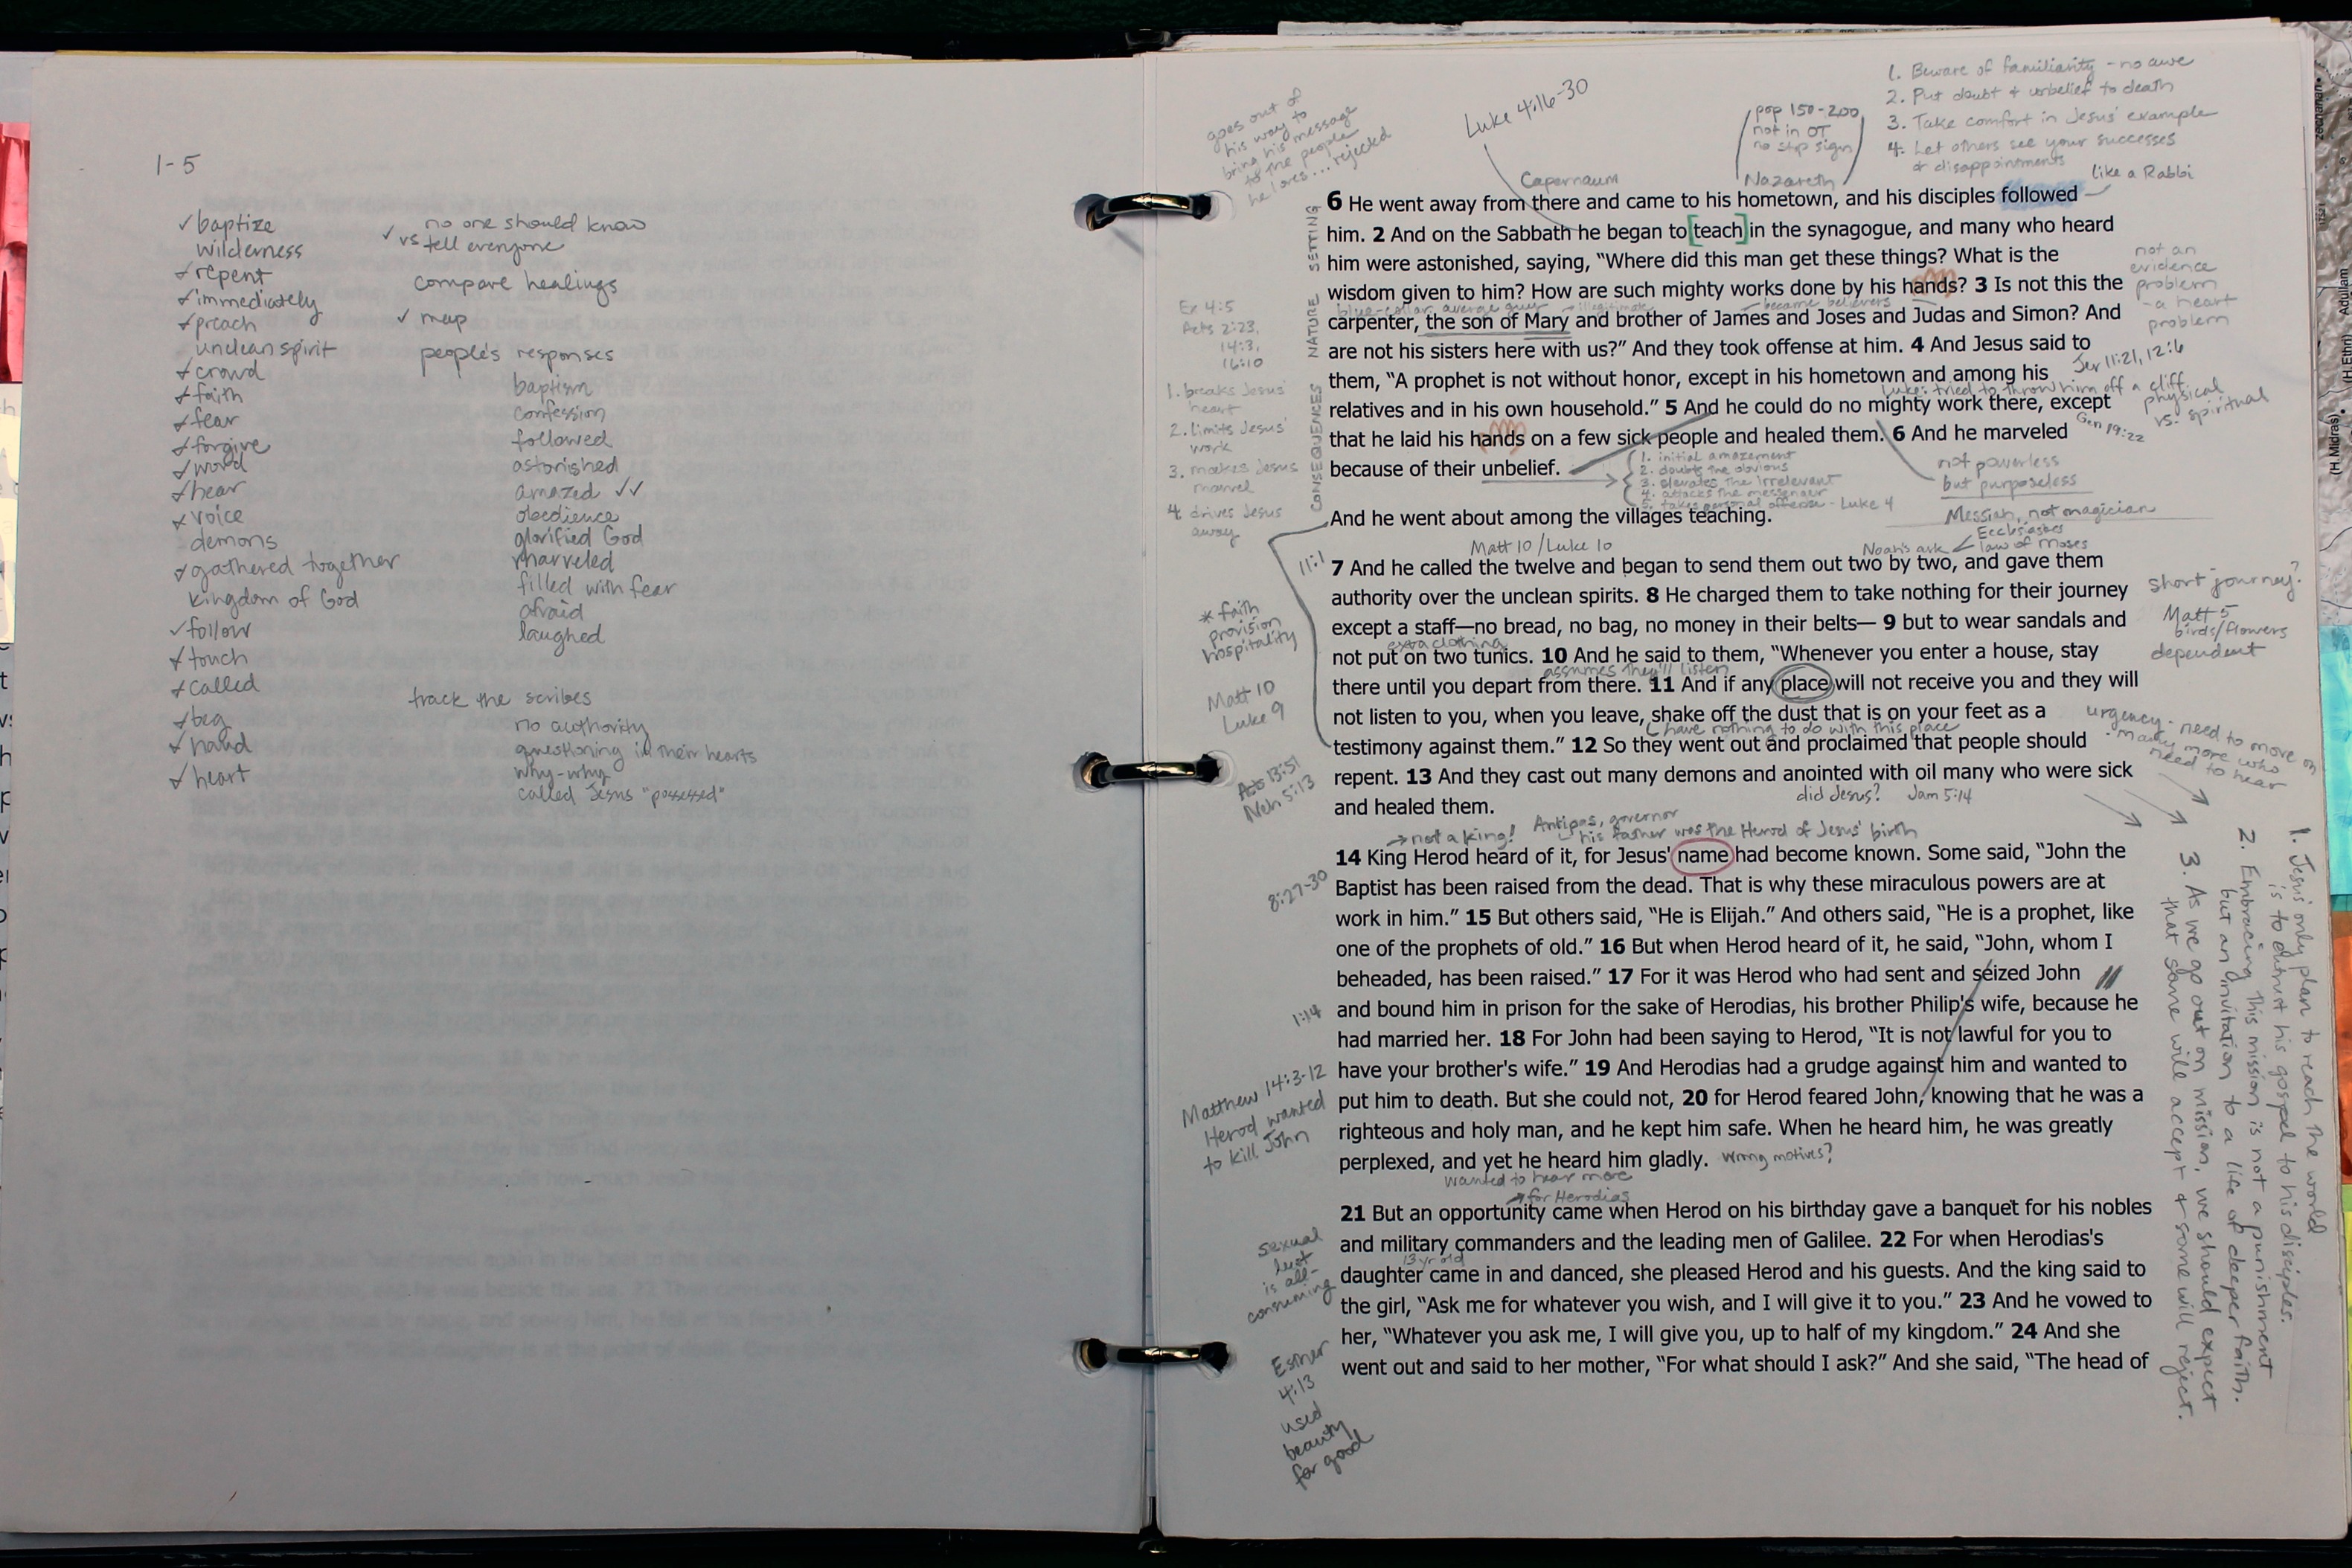 1-5
✓ baptize
wilderness
✓ repent
✓ immediately
✓ preach
unclean spirit
✓ crowd
✓ faith
✓ fear
✓ forgive
✓ word
✓ hear
✓ voice
demons
✓ gathered together
kingdom of God
✓ follow
✓ touch
✓ called
✓ beg
✓ hand
✓ heart
no one should know
✓ vs tell everyone
compare healings
✓ map
people's responses
baptism
confession
followed
astonished
amazed ✓✓
obedience
glorified God
marveled
filled with fear
afraid
laughed
track the scribes
no authority
questioning in their hearts
why-why
called Jesus "possessed"
goes out of
his way to
bring his message
to the people
he loves... rejected
Luke 4:16-30
Capernaum
pop 150-200
not in OT
no stop sign
Nazareth
1. Beware of familiarity - no awe
2. Put doubt & unbelief to death
3. Take comfort in Jesus' example
4. Let others see your successes
& disappointments
like a Rabbi
SETTING
6 He went away from there and came to his hometown, and his disciples followed
him. 2 And on the Sabbath he began to [teach] in the synagogue, and many who heard
him were astonished, saying, “Where did this man get these things? What is the
wisdom given to him? How are such mighty works done by his hands? 3 Is not this the
blue-collar, average guy illegitimate became believers
carpenter, the son of Mary and brother of James and Joses and Judas and Simon? And
are not his sisters here with us?” And they took offense at him. 4 And Jesus said to
them, “A prophet is not without honor, except in his hometown and among his
Luke: tried to throw him off a cliff
relatives and in his own household.” 5 And he could do no mighty work there, except
that he laid his hands on a few sick people and healed them. 6 And he marveled
because of their unbelief.
not an
evidence
problem
- a heart
problem
NATURE
Ex 4:5
Acts 2:23,
14:3,
16:10
Jer 11:21, 12:6
physical
vs. spiritual
Gen 19:22
CONSEQUENCES
1. breaks Jesus'
heart
2. limits Jesus'
work
3. makes Jesus
marvel
4. drives Jesus
away
1. initial amazement
2. doubts the obvious
3. elevates the irrelevant
4. attacks the messenger
5. takes personal offense - Luke 4
not powerless
but purposeless
Messiah, not magician
And he went about among the villages teaching.
Matt 10 / Luke 10
Noah's ark
Ecclesiastes
law of Moses
11:1
7 And he called the twelve and began to send them out two by two, and gave them
authority over the unclean spirits. 8 He charged them to take nothing for their journey
except a staff—no bread, no bag, no money in their belts— 9 but to wear sandals and
extra clothing
not put on two tunics. 10 And he said to them, “Whenever you enter a house, stay
assumes they'll listen
there until you depart from there. 11 And if any place will not receive you and they will
not listen to you, when you leave, shake off the dust that is on your feet as a
have nothing to do with this place
testimony against them.” 12 So they went out and proclaimed that people should
repent. 13 And they cast out many demons and anointed with oil many who were sick
and healed them.
did Jesus? Jam 5:14
short journey?
Matt 5
birds/flowers
dependent
* faith
provision
hospitality
Matt 10
Luke 9
Acts 13:51
Neh 5:13
urgency - need to move on
- many more who
need to hear
→ not a king!
Antipas, governor
his father was the Herod of Jesus' birth
14 King Herod heard of it, for Jesus' name had become known. Some said, “John the
Baptist has been raised from the dead. That is why these miraculous powers are at
work in him.” 15 But others said, “He is Elijah.” And others said, “He is a prophet, like
one of the prophets of old.” 16 But when Herod heard of it, he said, “John, whom I
beheaded, has been raised.” 17 For it was Herod who had sent and seized John
and bound him in prison for the sake of Herodias, his brother Philip's wife, because he
had married her. 18 For John had been saying to Herod, “It is not lawful for you to
have your brother's wife.” 19 And Herodias had a grudge against him and wanted to
put him to death. But she could not, 20 for Herod feared John, knowing that he was a
righteous and holy man, and he kept him safe. When he heard him, he was greatly
perplexed, and yet he heard him gladly. wrong motives?
wanted to hear more
8:27-30
1:14
Matthew 14:3-12
Herod wanted
to kill John
→ for Herodias
21 But an opportunity came when Herod on his birthday gave a banquet for his nobles
and military commanders and the leading men of Galilee. 22 For when Herodias's
13 yr old
daughter came in and danced, she pleased Herod and his guests. And the king said to
the girl, “Ask me for whatever you wish, and I will give it to you.” 23 And he vowed to
her, “Whatever you ask me, I will give you, up to half of my kingdom.” 24 And she
went out and said to her mother, “For what should I ask?” And she said, “The head of
sexual
lust
is all-
consuming
Esther
4:13
used
beauty
for good
1. Jesus' only plan to reach the world
is to entrust his gospel to his disciples.
2. Embracing this mission is not a punishment
but an invitation to a life of deeper faith.
3. As we go out on mission, we should expect
that some will accept & some will reject.
Adullam
(H.Ethri)
(H.Midras)